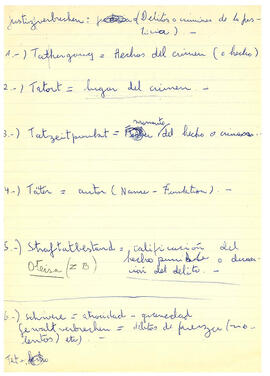 Justizverbrechen: (Delitos o crimenes de la jus-
ticia) .-
1.-) Tathergang = Hechos del crimen (o hecho)
2.-) Tatort = lugar del crimen. -
momento
3.-) Tatzeitpunkt = (del hecho o crimen. -
4.-) Täter = autor (Name - Funktion). -
5.-) Straftatbestand = calificación del
Oteiza (z B) hecho punible o denun-
cia del delito. -
6.-) schwere = atrocidad - gravedad
Gewaltverbrechen = delitos de fuerza (vio-
lentos) etc) . -
Tat =